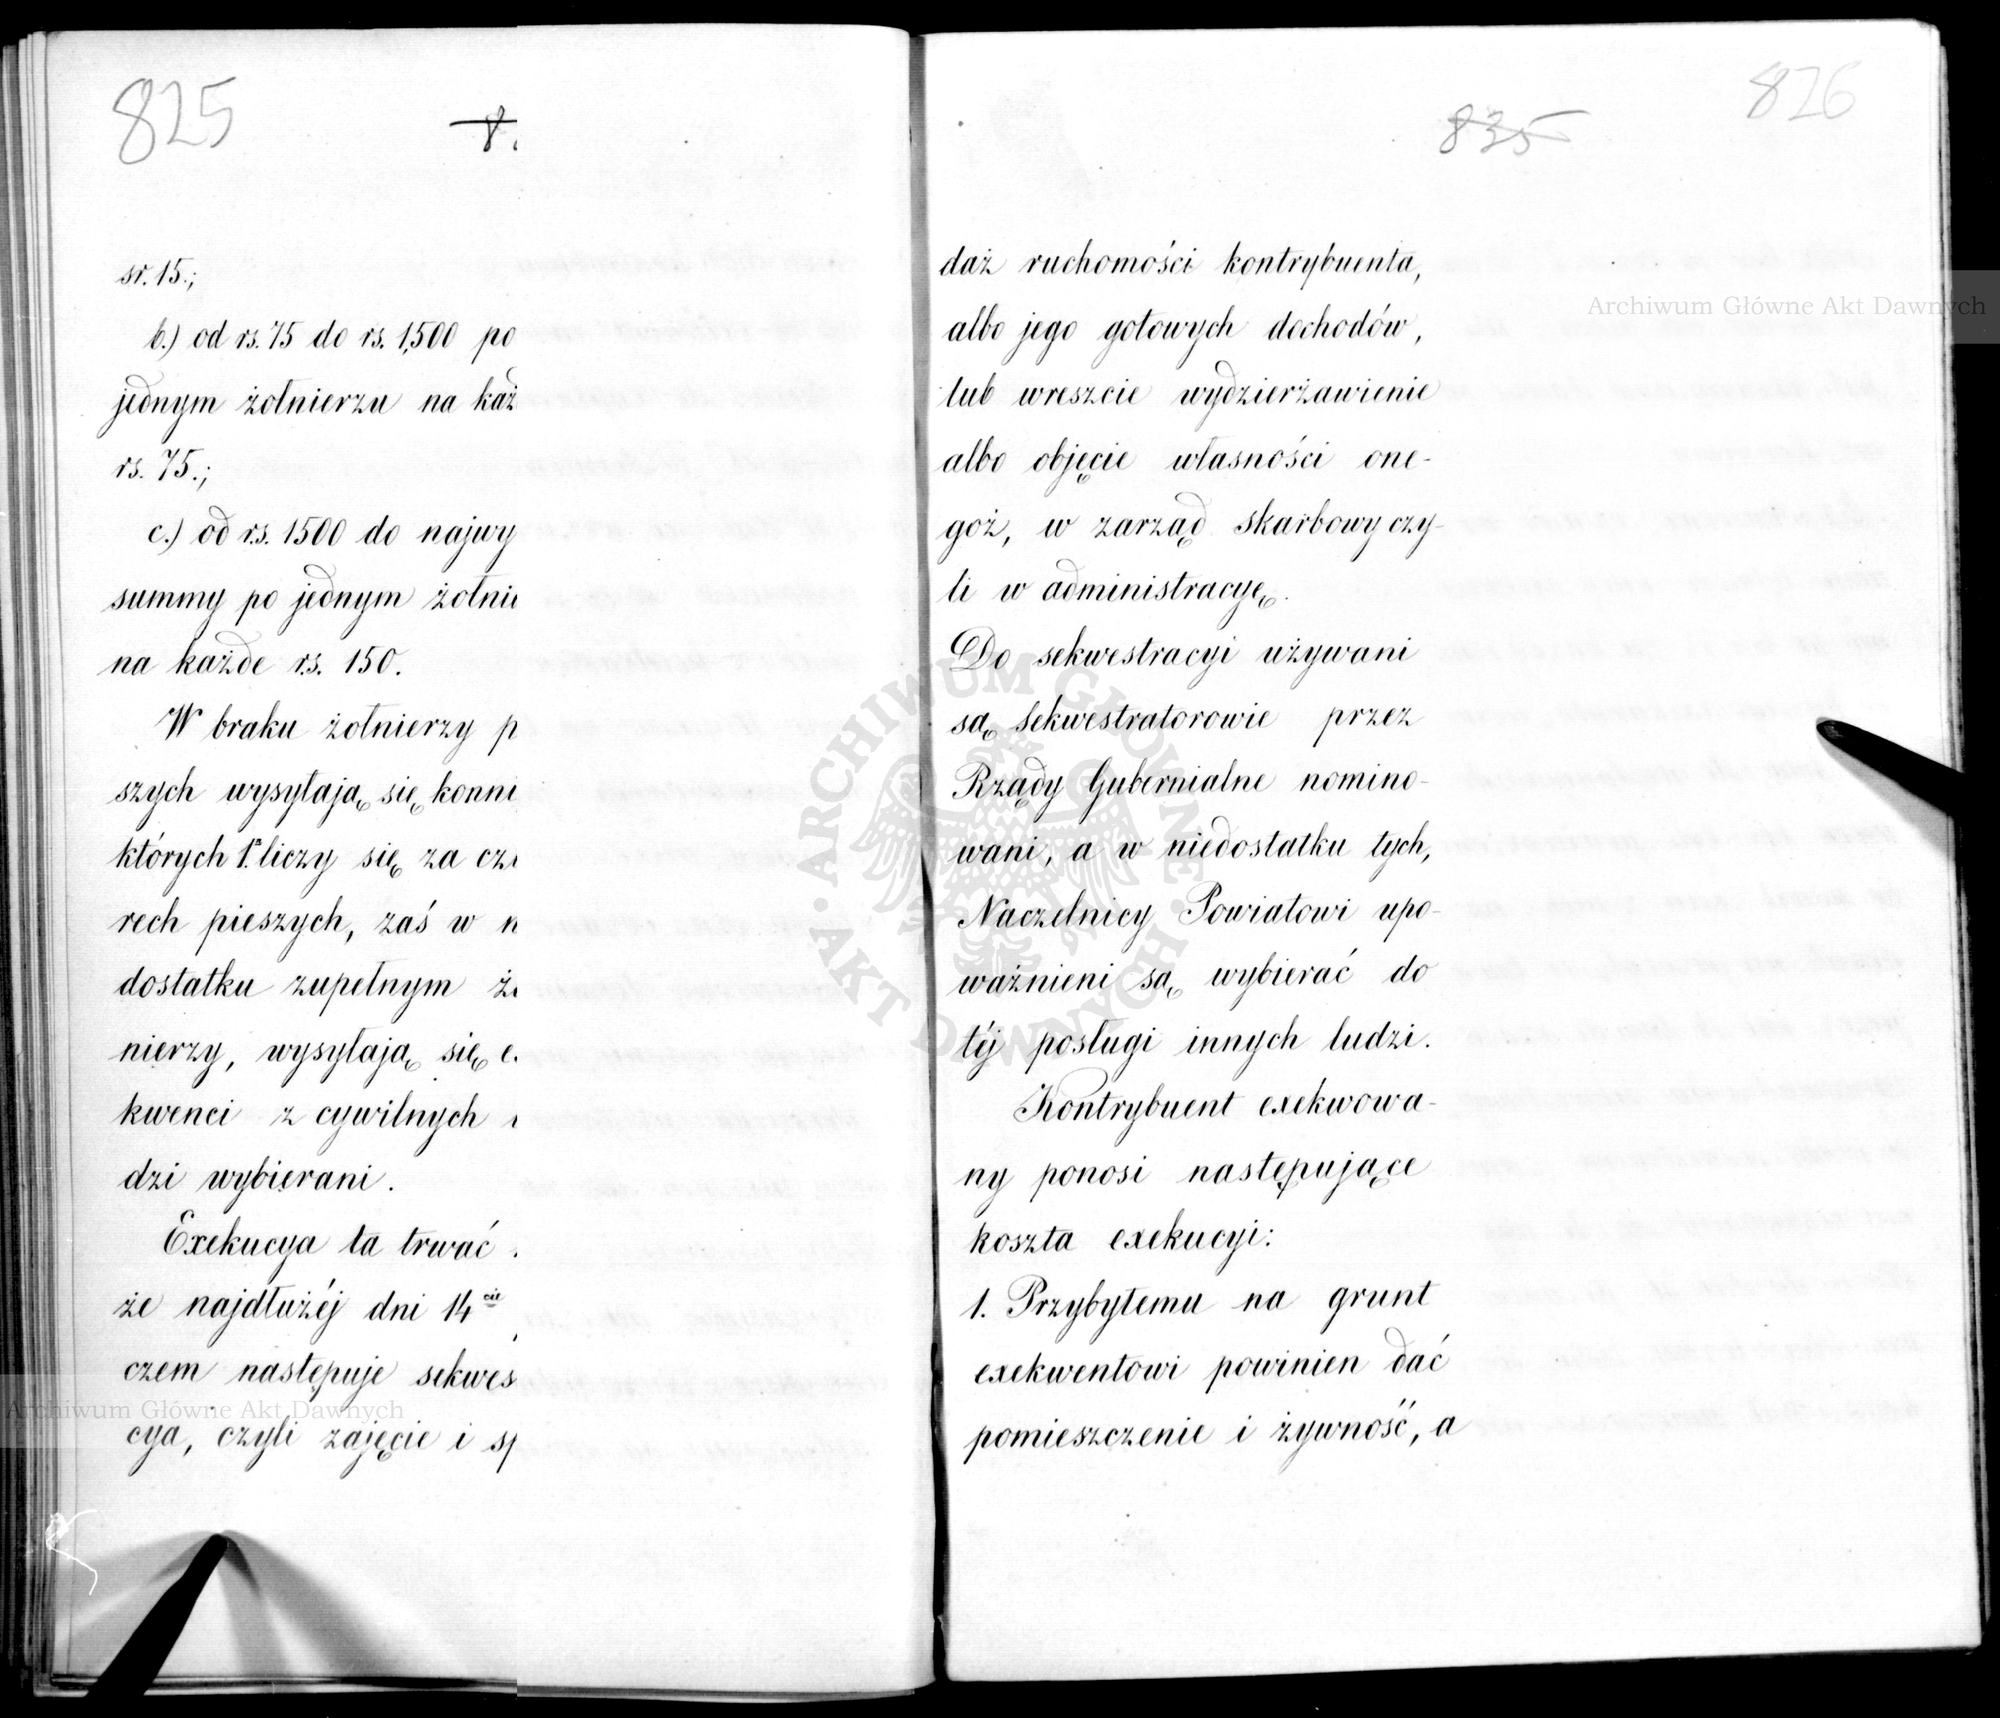 825
sr. 15.;
b.) od rs. 75 do rs. 1,500 po
jednym żołnierzu na każ
rs. 75.;
c.) od rs. 1500 do najwy
summy po jednym żołni
na każde rs. 150.
W braku żołnierzy p
szych wysyłają się konni
których 1. liczy się za cz
rech pieszych, zaś w n
dostatku zupełnym ż
nierzy, wysyłają się e
kwenci z cywilnych
dzi wybierani.
Exekucya ta trwać
że najdłużéj dni 14 cie
czem następuje sekwes
cya, czyli zajęcie i sp
826
835
daż ruchomości kontrybuenta,
albo jego gotowych dochodów,
lub wreszcie wydzierżawienie
albo objęcie własności one-
goż, w zarząd skarbowy czy-
li w administracyę.
Do sekwestracyi używani
są sekwestratorowie przez
Rządy Gubernialne nomino-
wani, a w niedostatku tych,
Naczelnicy Powiatowi upo-
ważnieni są wybierać do
téj posługi innych ludzi.
Kontrybuent exekwowa-
ny ponosi następujące
koszta exekucyi:
1. Przybyłemu na grunt
exekwentowi powinien dać
pomieszczenie i żywność, a
Archiwum Główne Akt Dawnych
Archiwum Główne Akt Dawnych
ARCHIWUM GŁÓWNE
AKT DAWNYCH